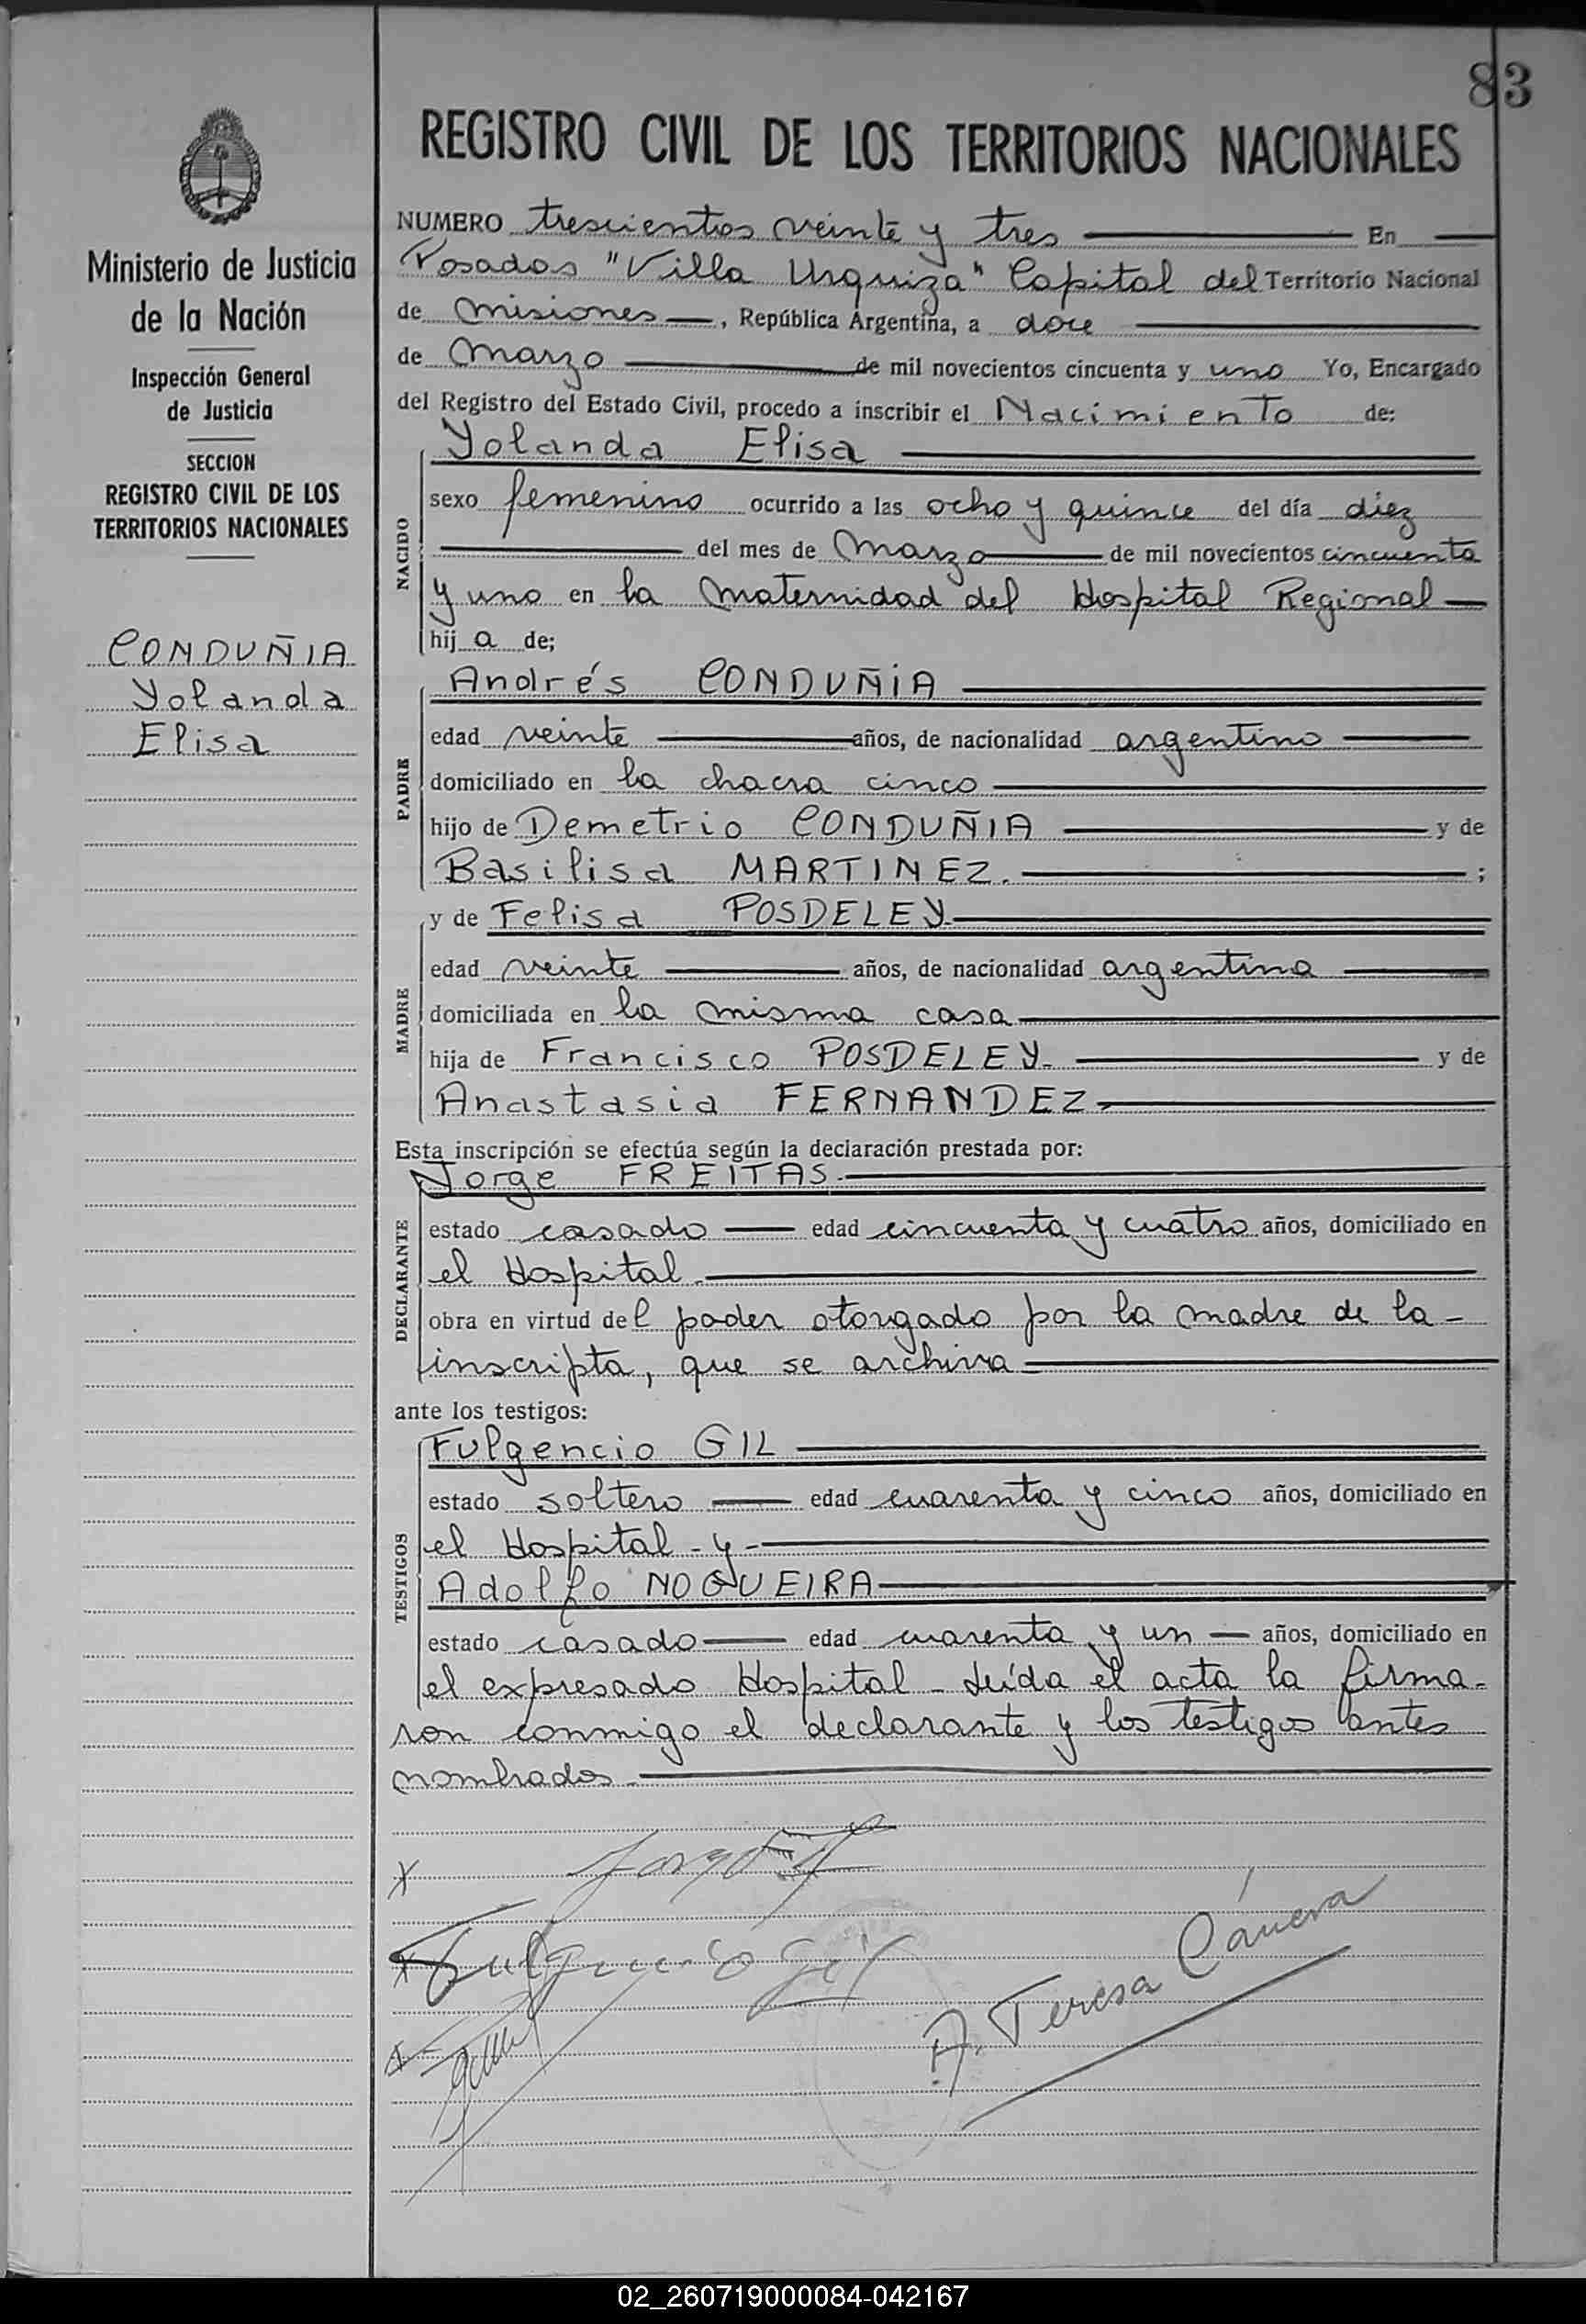 83
REGISTRO CIVIL DE LOS TERRITORIOS NACIONALES
Ministerio de Justicia
de la Nación
Inspección General
de Justicia
SECCION
REGISTRO CIVIL DE LOS
TERRITORIOS NACIONALES
CONDUÑIA
Yolanda
Elisa
NUMERO trescientos veinte y tres En
Posadas "Villa Urquiza" Capital del Territorio Nacional
de Misiones, República Argentina, a doce
de Marzo de mil novecientos cincuenta y uno Yo, Encargado
del Registro del Estado Civil, procedo a inscribir el Nacimiento de:
NACIDO
Yolanda Elisa
sexo femenino ocurrido a las ocho y quince del día diez
del mes de Marzo de mil novecientos cincuenta
y uno en la Maternidad del Hospital Regional
hij a de;
PADRE
Andrés CONDUÑIA
edad veinte años, de nacionalidad argentino
domiciliado en la chacra cinco
hijo de Demetrio CONDUÑIA y de
Basilisa MARTINEZ. ;
MADRE
y de Felisa POSDELEY
edad veinte años, de nacionalidad argentina
domiciliada en la misma casa
hija de Francisco POSDELEY. y de
Anastasia FERNANDEZ.
Esta inscripción se efectúa según la declaración prestada por:
DECLARANTE
Jorge FREITAS.
estado casado edad cincuenta y cuatro años, domiciliado en
el Hospital.
obra en virtud del poder otorgado por la madre de la
inscripta, que se archiva
ante los testigos:
TESTIGOS
Fulgencio GIL
estado soltero edad cuarenta y cinco años, domiciliado en
el Hospital - y -
Adolfo NOGUEIRA
estado casado edad cuarenta y un años, domiciliado en
el expresado Hospital - Leída el acta la firma-
ron conmigo el declarante y los testigos antes
nombrados.
Fulgencio Gil
A. Teresa Cánera
02_260719000084-042167